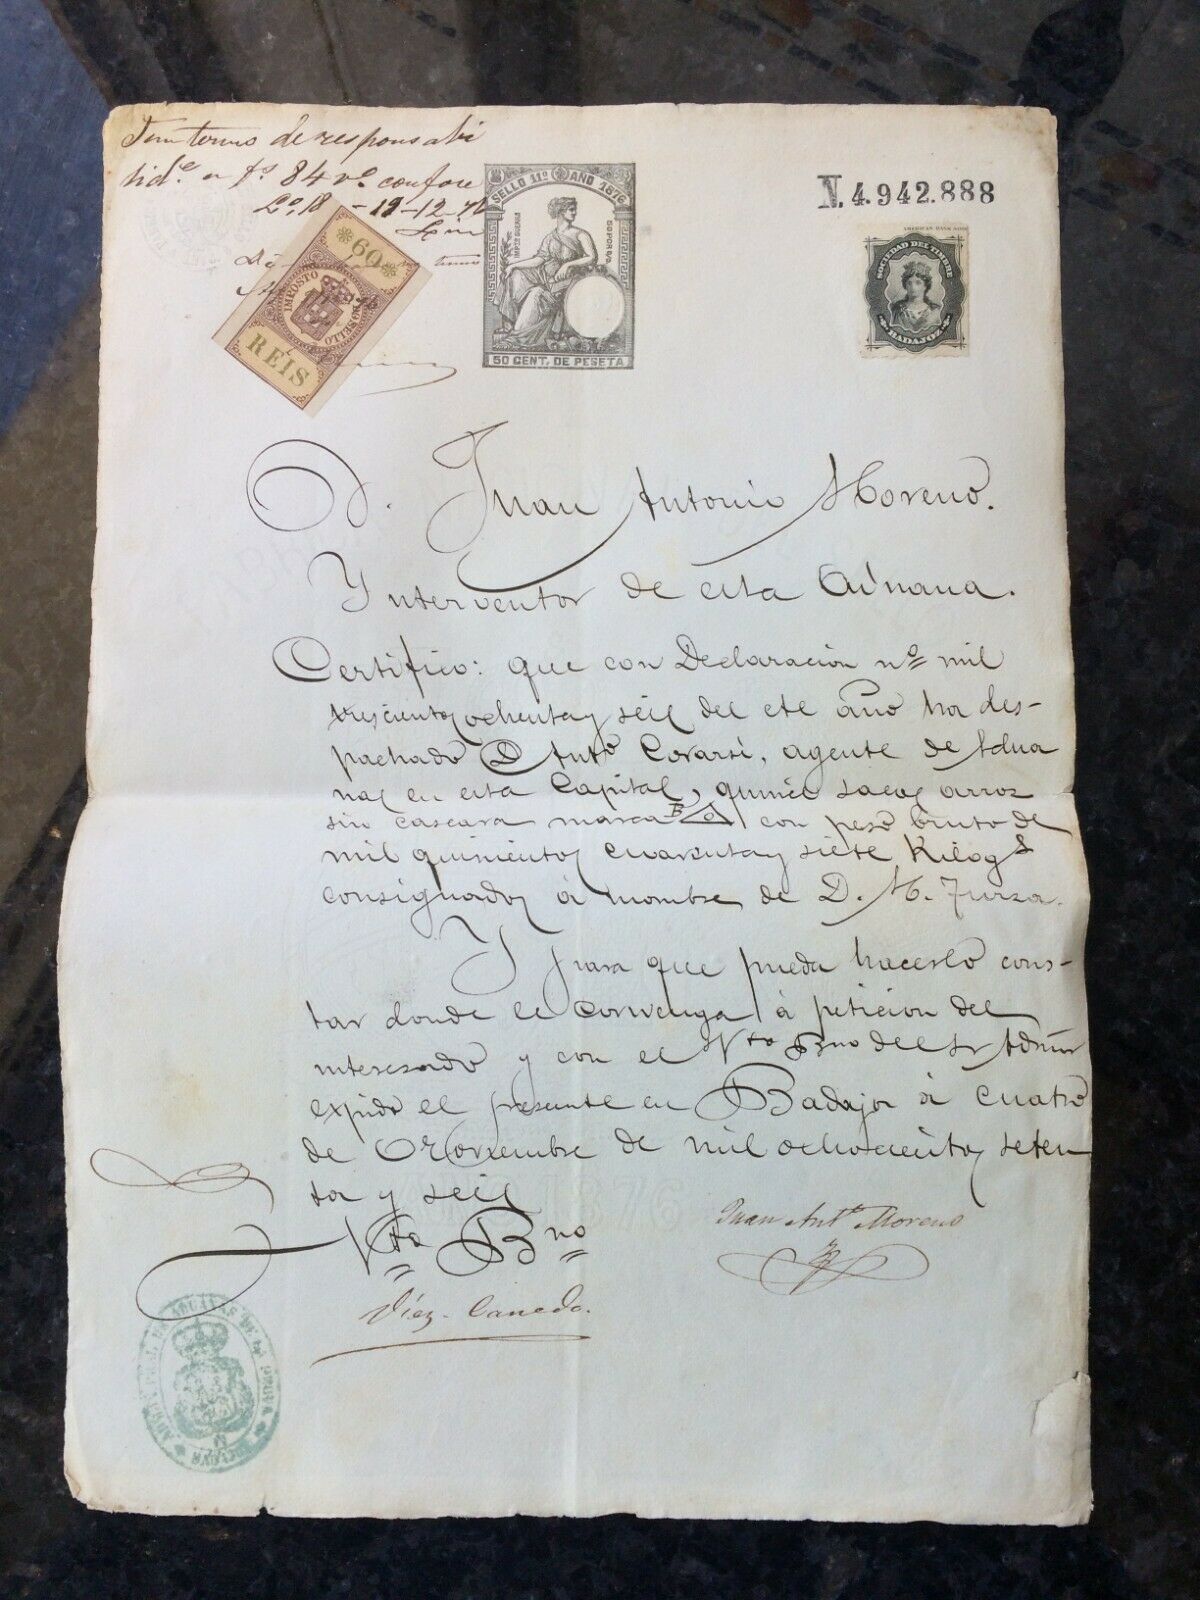 Tem termo de responsabi
lid.e a fs 84 vo confore
Lo 18 - 19-12-76
60
IMPOSTO DO SELLO
REIS
SELLO 11º AÑO 1876
50 CENT. DE PESETA
N. 4.942.888
AMERICAN BANK NOTE
SOCIEDAD DEL TIMBRE
BADAJOZ
D. Juan Antonio Moreno.
Ynterventor de esta Aduana.
Certifico: que con Declaracion nº mil
trescientos ochenta y seis del este año ha des-
pachado D Antº Covarsí, agente de Adua
nas en esta Capital, quince sacos arroz
sin cascara marca F O con peso bruto de
mil quinientos cuarenta y siete Kilogs
consignados á nombre de D. M.
Y para que pueda hacerlo cons-
tar donde le convenga á peticion del
interesado y con el Vto Bno del Sr Admor
expido el presente en Badajoz á cuatro
de Noviembre de mil ochocientos seten
ta y seis
Vto Bno
Juan Antº Moreno
Diez-Canedo.
1876